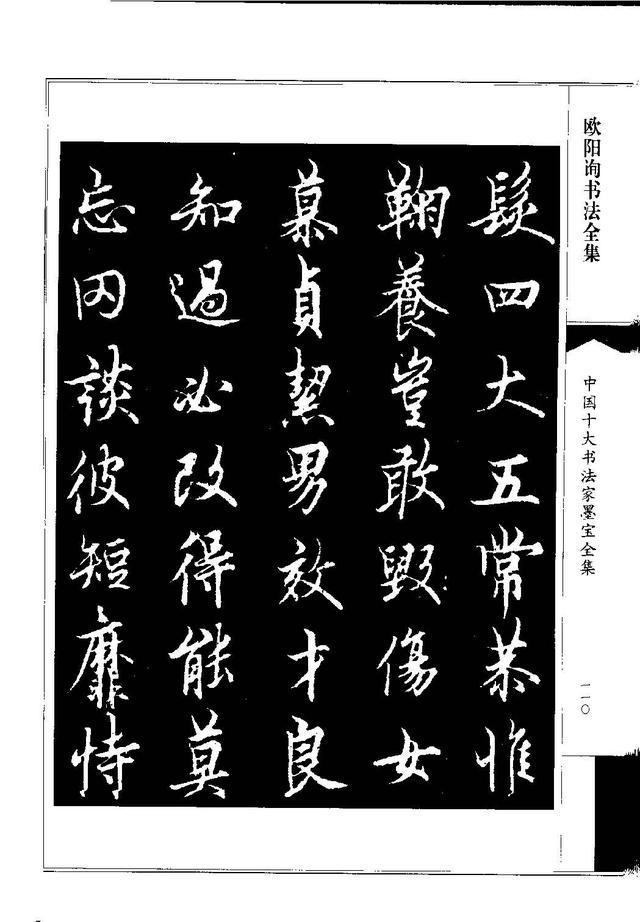 髮四大五常恭惟
鞠養豈敢毀傷女
慕貞絜男效才良
知過必改得能莫
忘罔談彼短靡恃
欧阳询书法全集
中国十大书法家墨宝全集
一一〇